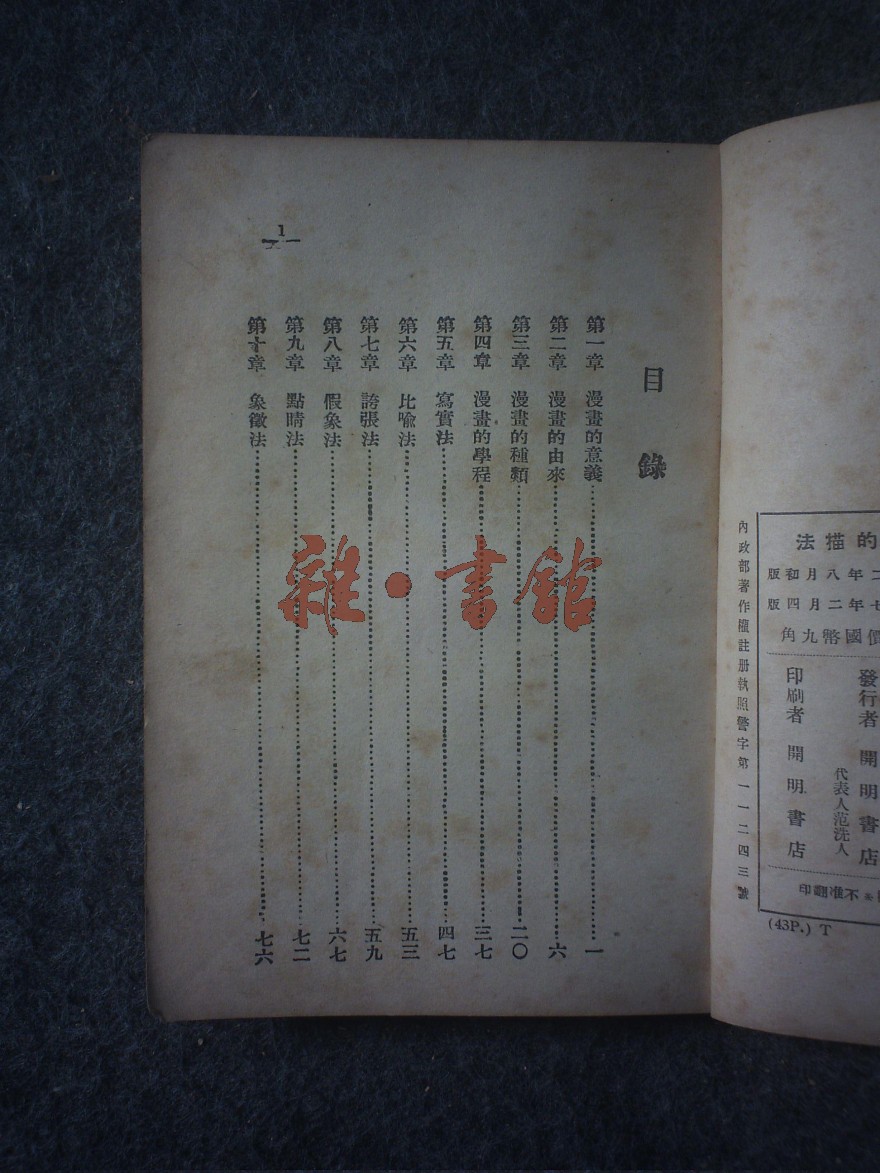 目錄
第一章 漫畫的意義……一
第二章 漫畫的由來……六
第三章 漫畫的種類……二〇
第四章 漫畫的學程……三七
第五章 寫實法……四七
第六章 比喻法……五三
第七章 誇張法……五九
第八章 假象法……六七
第九章 點睛法……七二
第十章 象徵法……七六
1
雜·書館
的描法
二年八月初版
七年二月四版
價國幣九角
發行者 開明書店
代表人范洗人
印刷者 開明書店
不准翻印
內政部著作權註册執照警字第一一二四三號
(43P.) T